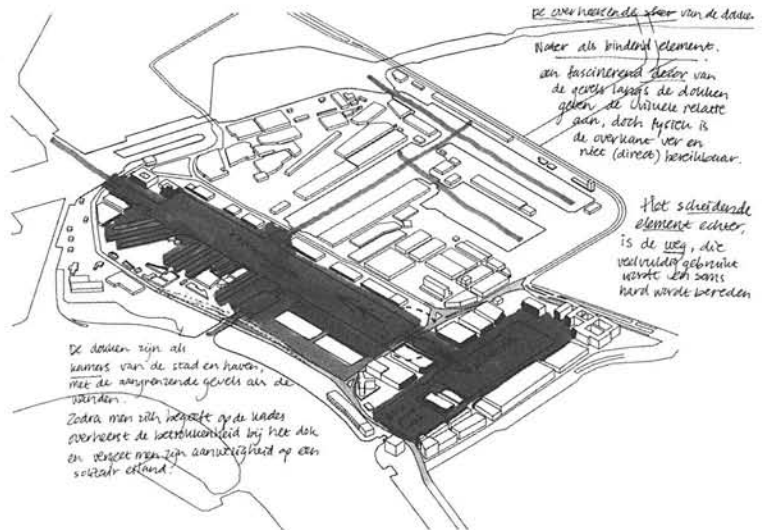 De overheersende sfeer van de dokken
Water als bindend element.
een fascinerend decor van
de gevels langs de dokken
geven de visuele relatie
aan, doch fysiek is
de overkant ver en
niet (direct) bereikbaar.
Het scheidende
element echter,
is de weg, die
veelvuldig gebruikt
wordt en soms
hard wordt bereden
De dokken zijn als
kamers van de stad en haven,
met de aangrenzende gevels als de
wanden.
Zodra men zich begeeft op de kades
overheerst de betrokkenheid bij het dok
en vergeet men zijn aanwezigheid op een
solitair eiland.